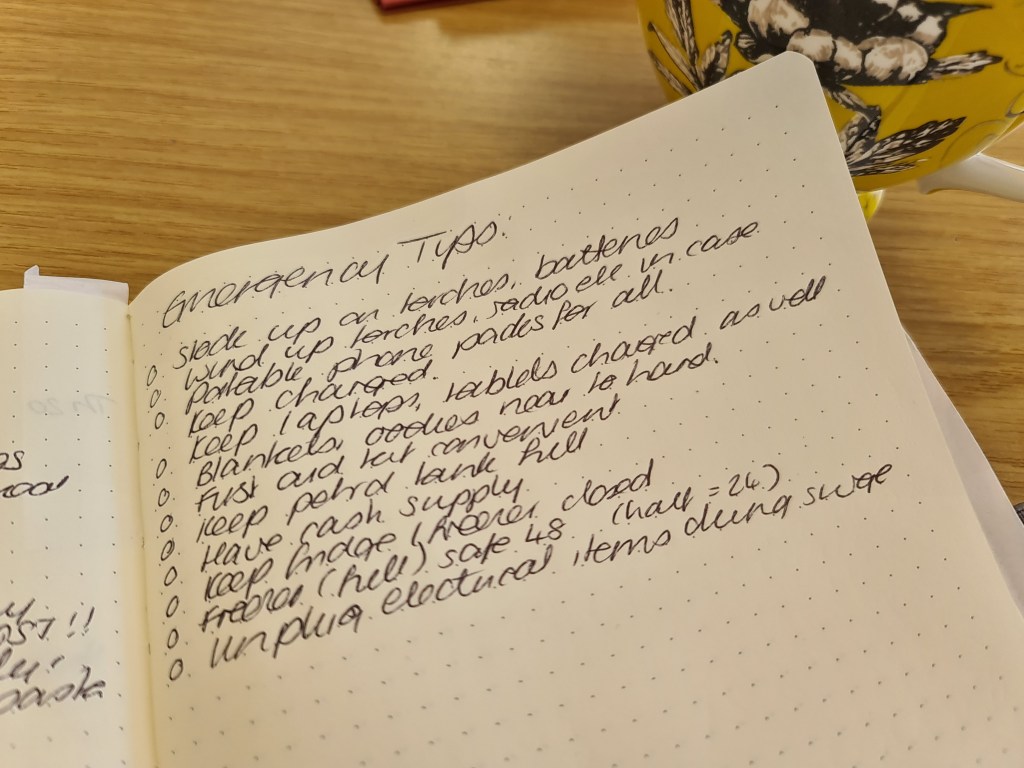 os
!!
Emergency Tips.
o stock up on torches, batteries
o wind up torches, radio etc in case
o Portable phone packs for all.
Keep charged.
o Keep laptops, tablets charged as well
o Blankets, oodies near to hand.
o First aid kit convenient
o Keep petrol tank full
o Have cash supply
o Keep fridge / freezer closed
o Freezer (full) safe 48 (half = 24)
o unplug electrical items during surge